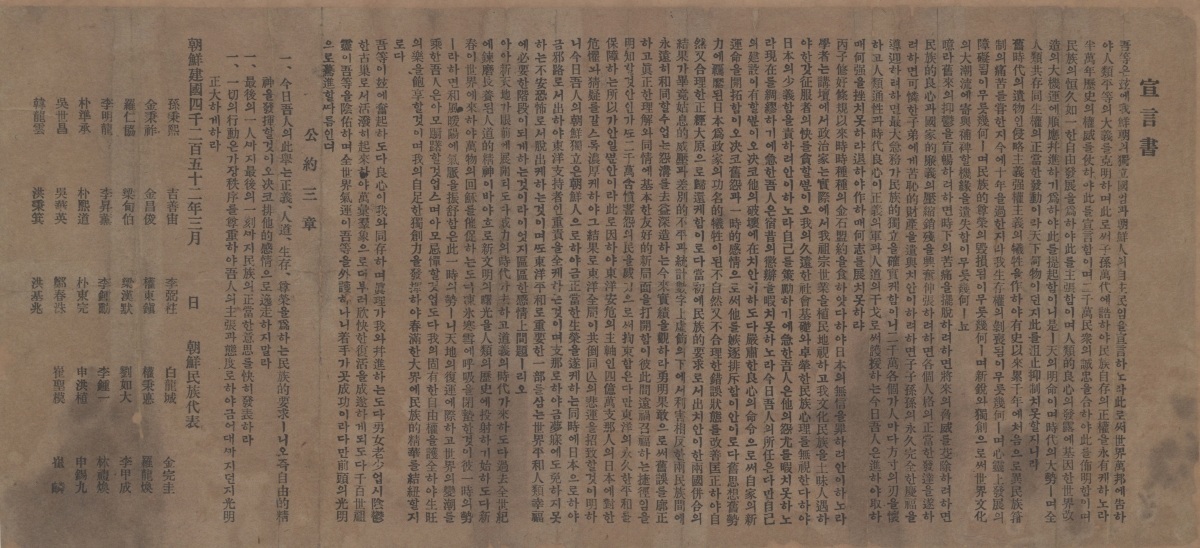 宣言書
吾等은玆에我鮮朝의獨立國임과朝鮮人의自主民임을宣言하노라此로써世界萬邦에告하
야人類平等의大義를克明하며此로써子孫萬代에誥하야民族自存의正權을永有케하노라
半萬年歷史의權威를仗하야此를宣言함이며二千萬民衆의誠忠을合하야此를佈明함이며
民族의恒久如一한自由發展을爲하야此를主張함이며人類的良心의發露에基因한世界改
造의大機運에順應幷進하기爲하야此를提起함이니是ㅣ天의明命이며時代의大勢ㅣ며全
人類共存同生權의正當한發動이라天下何物이던지此를沮止抑制치못할지니라
舊時代의遺物인侵略主義强權主義의犧牲을作하야有史以來累千年에처음으로異民族箝
制의痛苦를嘗한지今에十年을過한지라我生存權의剝喪됨이무릇幾何ㅣ며心靈上發展의
障礙됨이무릇幾何ㅣ며民族的尊榮의毁損됨이무릇幾何ㅣ며新銳와獨創으로써世界文化
의大潮流에寄與補裨할機緣을遺失함이무릇幾何ㅣ뇨
噫라舊來의抑鬱을宣暢하려하면時下의苦痛을擺脫하려하면將來의脅威를芟除하려하면
民族的良心과國家的廉義의壓縮銷殘을興奮伸張하려하면各個人格의正當한發達을遂하
려하면可憐한子弟에게苦恥的財産을遺與치안이하려하면子子孫孫의永久完全한慶福을
導迎하려하면最大急務가民族的獨立을確實케함이니二千萬各個가人마다方寸의刃을懷
하고人類通性과時代良心이正義의軍과人道의干戈로써護援하는今日吾人은進하야取하
매何强을挫치못하랴退하야作하매何志를展치못하랴
丙子修好條規以來時時種種의金石盟約을食하얏다하야日本의無信을罪하려안이하노라
學者는講壇에서政治家는實際에서我祖宗世業을植民地視하고我文化民族을土昧人遇하
야한갓征服者의快를貪할뿐이오我의久遠한社會基礎와卓犖한民族心理를無視한다하야
日本의少義함을責하려안이하노라自己를策勵하기에急한吾人은他의怨尤를暇치못하노
라現在를綢繆하기에急한吾人은宿昔의懲辨을暇치못하노라今日吾人의所任은다만自己
의建設이有할뿐이오決코他의破壞에在치안이하도다嚴肅한良心의命令으로써自家의新
運命을開拓함이오決코舊怨과一時的感情으로써他를嫉逐排斥함이안이로다舊思想舊勢
力에羈縻된日本爲政家의功名的犧牲이된不自然又不合理한錯誤狀態를改善匡正하야自
然又合理한正經大原으로歸還케함이로다當初에民族的要求로서出치안이한兩國倂合의
結果가畢竟姑息的威壓과差別的不平과統計數字上虛飾의下에서利害相反한兩民族間에
永遠히和同할수업는怨溝를去益深造하는今來實績을觀하라勇明果敢으로써舊誤를廓正
하고眞正한理解와同情에基本한友好的新局面을打開함이彼此間遠禍召福하는捷徑임을
明知할것안인가또二千萬含憤蓄怨의民을威力으로써拘束함은다만東洋의永久한平和를
保障하는所以가안일뿐안이라此로因하야東洋安危의主軸인四億萬支那人의日本에對한
危懼와猜疑를갈스록濃厚케하야그結果로東洋全局이共倒同亡의悲運을招致할것이明하
니今日吾人의朝鮮獨立은朝鮮人으로하야금正當한生榮을遂케하는同時에日本으로하야
금邪路로서出하야東洋支持者인重責을全케하는것이며支那로하야금夢寐에도免하지못
하는不安恐怖로서脫出케하는것이며또東洋平和로重要한一部를삼는世界平和人類幸福
에必要한階段이되게하는것이라이엇지區區한感情上問題ㅣ리오
아아新天地가眼前에展開되도다威力의時代가去하고道義의時代가來하도다過去全世紀
에鍊磨長養된人道的精神이바야흐로新文明의曙光을人類의歷史에投射하기始하도다新
春이世界에來하야萬物의回蘇를催促하는도다凍氷寒雪에呼吸을閉蟄한것이彼一時의勢
ㅣ라하면和風暖陽에氣脈을振舒함은此一時의勢ㅣ니天地의復運에際하고世界의變潮를
乘한吾人은아모躕躇할것업스며아모忌憚할것업도다我의固有한自由權을護全하야生旺
의樂을飽享할것이며我의自足한獨創力을發揮하야春滿한大界에民族的精華를結紐할지
로다
吾等이玆에奮起하도다良心이我와同存하며眞理가我와幷進하는도다男女老少업시陰鬱
한古巢로서活潑히起來하야萬彙羣象으로더부러欣快한復活을成遂하게되도다千百世祖
靈이吾等을陰佑하며全世界氣運이吾等을外護하나니着手가곳成功이라다만前頭의光明
으로驀進할따름인뎌
公約三章
一、今日吾人의此擧는正義、人道、生存、尊榮을爲하는民族的要求ㅣ니오즉自由的精
神을發揮할것이오決코排他的感情으로逸走하지말라
一、最後의一人까지最後의一刻까지民族의正當한意思를快히發表하라
一、一切의行動은가장秩序를尊重하야吾人의主張과態度로하야금어대까지던지光明
正大하게하라
朝鮮建國四千二百五十二年三月 日 朝鮮民族代表
孫秉熙 吉善宙 李弼柱 白龍城 金完圭
金秉祚 金昌俊 權東鎭 權秉悳 羅龍煥
羅仁協 梁甸伯 梁漢默 劉如大 李甲成
李明龍 李昇薰 李鍾勳 李鍾一 林禮煥
朴準承 朴熙道 朴東完 申洪植 申錫九
吳世昌 吳華英 鄭春洙 崔聖模 崔麟
韓龍雲 洪秉箕 洪基兆